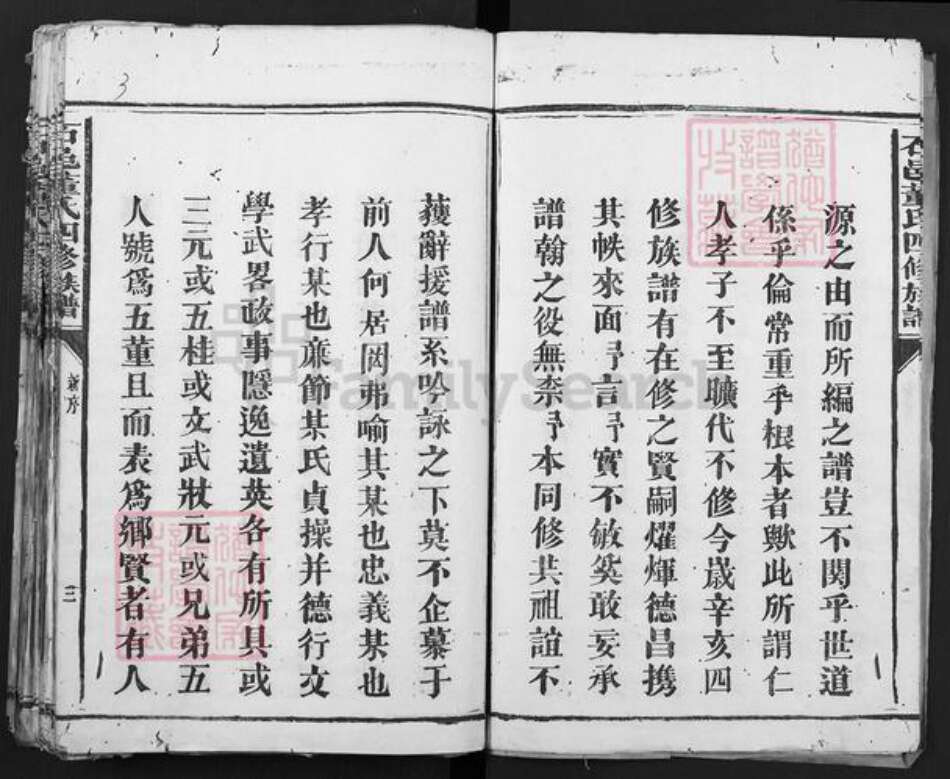 石邑董氏四修族譜
源之由而所編之譜豈不関乎世道
係乎倫常重乎根本者歟此所謂仁
人孝子不至曠代不修今歲辛亥四
修族譜有在修之賢嗣燿煇德昌携
其帙來面予言予實不敏奚敢妄承
譜翰之役無柰予本同修共祖誼不
蒦辭援譜系吟詠之下莫不企慕于
前人何居罔弗喻其某也忠義某也
孝行某也亷節某氏貞操并德行文
學武畧政事隱逸遺英各有所具或
三元或五桂或文武狀元或兄弟五
人號爲五董且而表爲鄉賢者有人
石邑董氏四修族譜
新序
三
3
FamilySearch